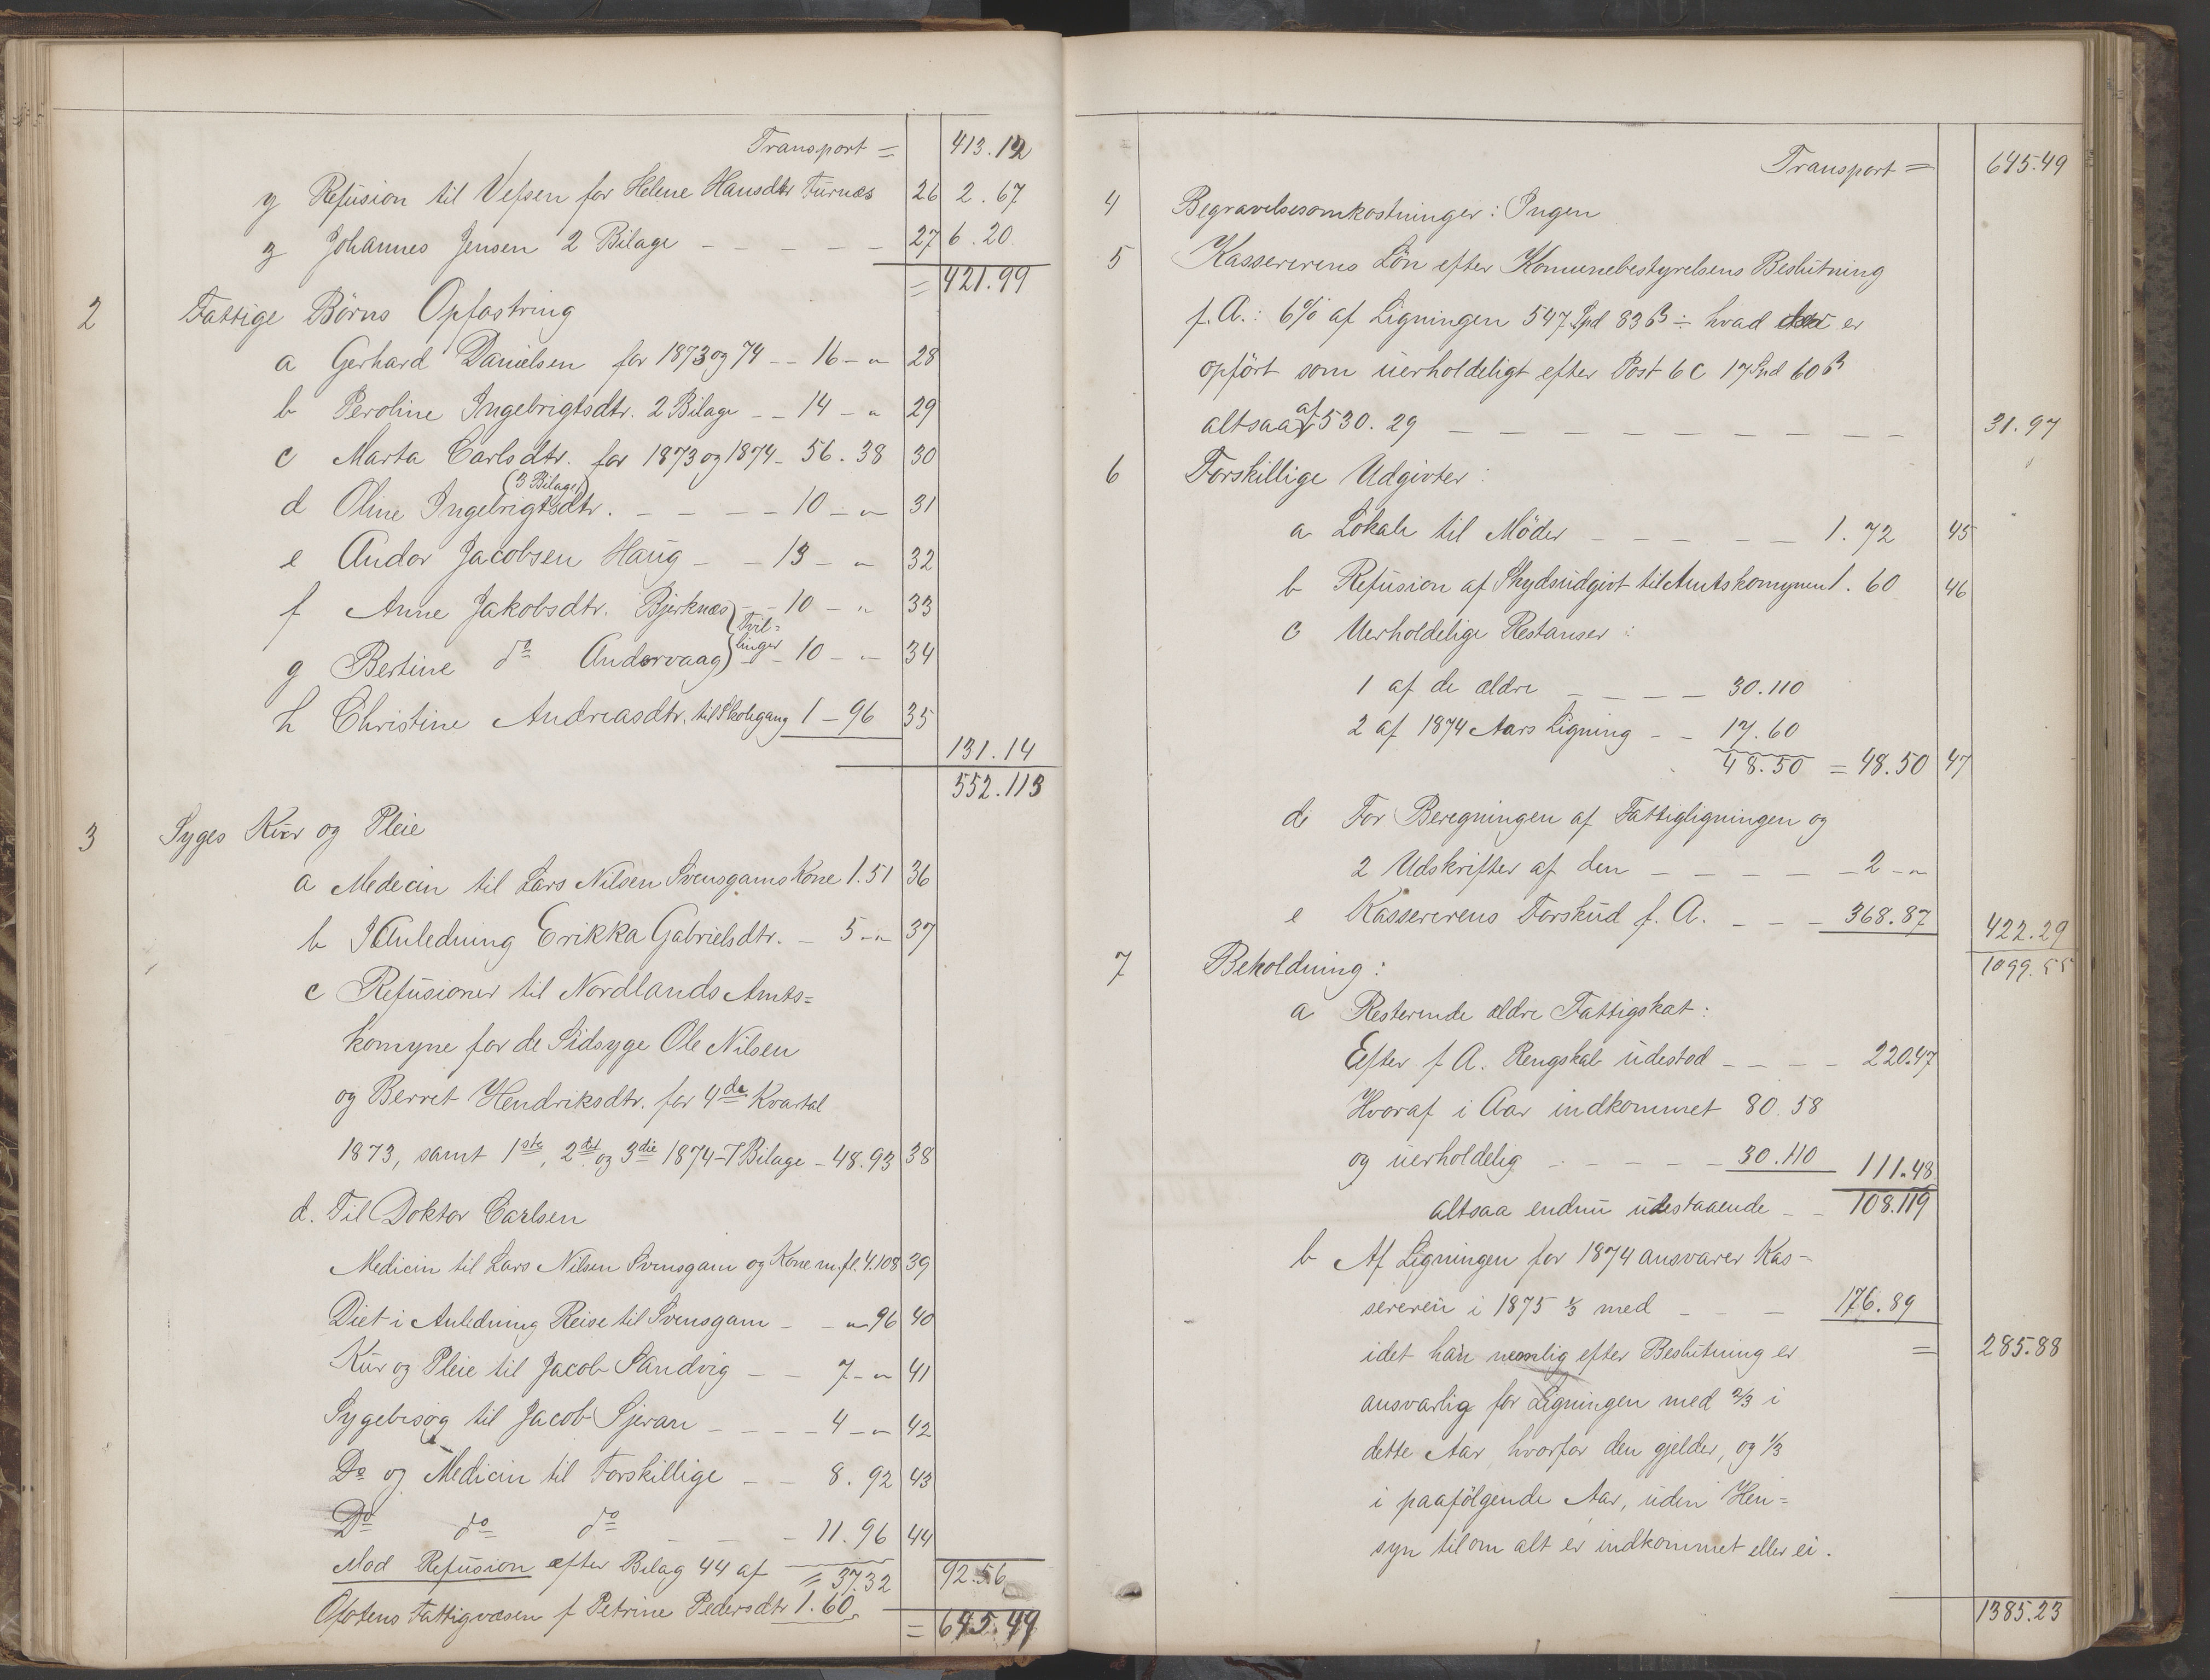 Transport = 413.12
y Refusion til Vefsen for Helene Hansdtr Furnæs 26 2.67
z Johannes Jensen 2 Bilage - - - - - 27 6.20
= 421.99
2 Fattige Børns Opfostring
a Gerhard Danielsen for 1873 og 74 - - 16 - " 28
b Peroline Ingebrigtsdtr. 2 Bilage - - 14 - " 29
c Marta Carlsdtr. for 1873 og 1874 - 56.38 30
(3 Bilager)
d Oline Ingebrigtsdtr. - - - - 10 - " 31
e Andor Jacobsen Haug - - 13 - " 32
f Anne Jakobsdtr. Bjerknæs - - 10 - " 33
Tvil=
linger
g Bertine do Andorvaag - - 10 - " 34
h Christine Andreasdtr. til Skolegang 1 - 96 35
131.14
552.113
3 Syges Kur og Pleie
a Medecin til Lars Nilsen Svensgams Kone 1.51 36
b I Anledning Erikka Gabrielsdtr. - 5 - " 37
c Refusioner til Nordlands Amts=
komune for de Sidsyge Ole Nilsen
og Berret Hendriksdtr. for 4de Kvartal
1873, samt 1ste, 2det og 3die 1874 - 7 Bilage - 48.93 38
d. Til Doktor Carlsen
Medicin til Lars Nilsen Svensgam og Kone m. fl. 4.108 39
Diet i Anledning Reise til Svensgam - - " 96 40
Kur og Pleie til Jacob Sandvig - - 7 - " 41
Sygebesøg til Jacob Sjeran - - - - 4 - " 42
Do og Medicin til Forskillige - - 8.92 43
Do do do - - - 11.96 44
Mod Refusion efter Bilag 44 af = 37.32 92.56
Ofotens Fattigvæsen f Petrine Pedersdtr 1.60
= 645.49
Transport = 645.49
4 Begravelsesomkostninger: Ingen
5 Kassererens Løn efter Komunebestyrelsens Beslutning
f. A.: 6% af Ligningen 547 Spd 83 ß ÷ hvad der er
opført som uerholdeligt efter Post 6 C 17 Spd 60 ß
altsaa af 530.29 - - - - - - - - - 31.97
6 Forskillige Udgivter:
a Lokale til Møder - - - - - 1.72 45
b Refusion af Skydsudgivt til Amtskomunen 1.60 46
c Uerholdelige Restanser:
1 af de ældre - - - - 30.110
2 af 1874 Aars Ligning - - 17.60
48.50 = 48.50 47
d For Beregningen af Fattigligningen og
2 Udskrifter af den - - - - - 2 - "
e Kassererens Forskud f. A. - - - 368.87 422.29
1099.55
7 Beholdning:
a Resterende ældre Fattigskat:
Efter f. A. Rengskab udestod - - - - 220.47
Hvoraf i Aar indkommet 80.58
og uerholdelig - - - - - 30.110 111.48
altsaa endnu udestaaende - - 108.119
b Af Ligningen for 1874 ansvarer Kas-
sereren i 1875 1/3 med - - - 176.89
idet han nemlig efter Beslutning er = 285.88
ansvarlig for Ligningen med 2/3 i
dette Aar, hvorfor den gjelder, og 1/3
i paafølgende Aar, uden Hen=
syn til om alt er indkommet eller ei.
1385.23